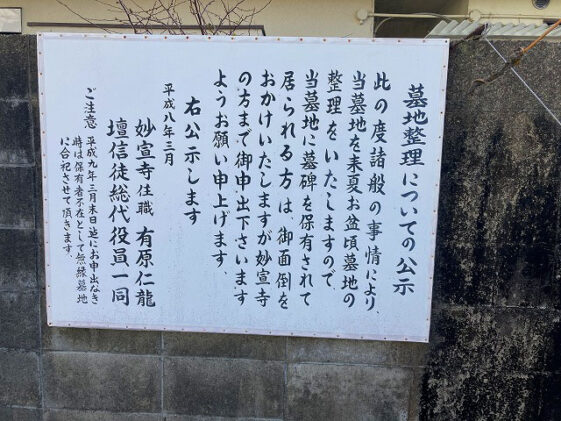 墓地整理についての公示
此の度諸般の事情により、
当墓地を来夏お盆頃墓地の
整理をいたしますので、
当墓地に墓碑を保有されて
居られる方は、御面倒を
おかけいたしますが妙宣寺
の方まで御申出下さいます
ようお願い申上げます。
右公示します
平成八年三月
妙宣寺住職 有原仁龍
壇信徒総代役員一同
ご注意 平成九年三月末日迄にお申出なき
時は保有者不在として無縁墓地
に合祀させて頂きます。